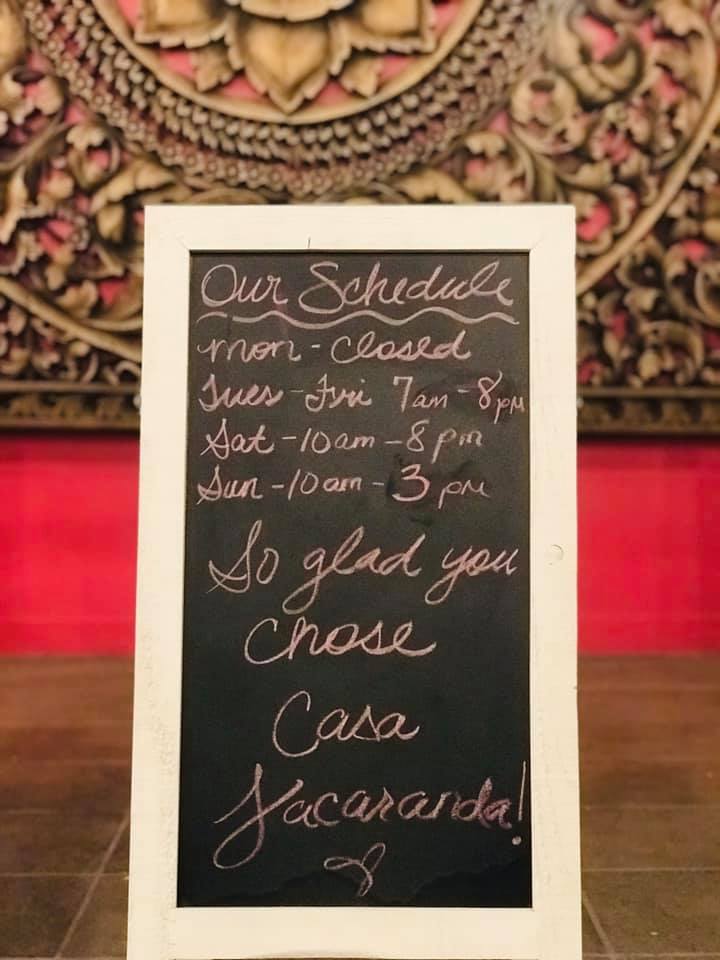 Our Schedule
mon - closed
Tues - Fri 7am - 8pm
Sat - 10am - 8pm
Sun - 10am - 3pm
So glad you
chose
Casa
Jacaranda!